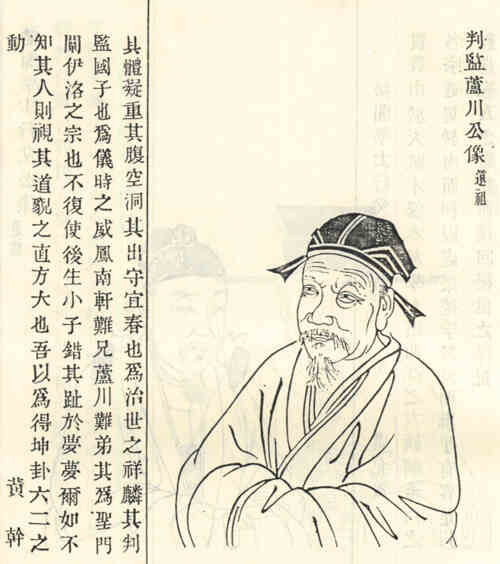 判監蘆川公像 祖
其體凝重其腹空洞其出守宜春也爲治世之祥麟其判
監國子也爲儀時之威鳳南軒難兄蘆川難弟其爲聖門
闡伊洛之宗也不復使後生小子錯其趾於夢夢爾如不
知其人則視其道貌之直方大也吾以爲得坤卦六二之
動 黃幹